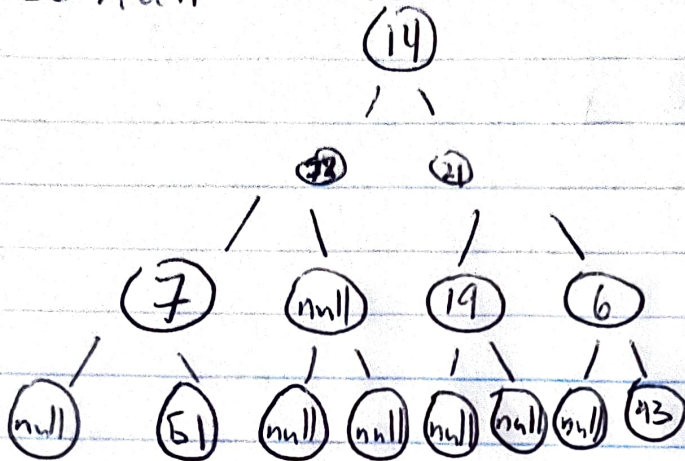 14
21
7 null 19 6
null 51 null null null null null 43